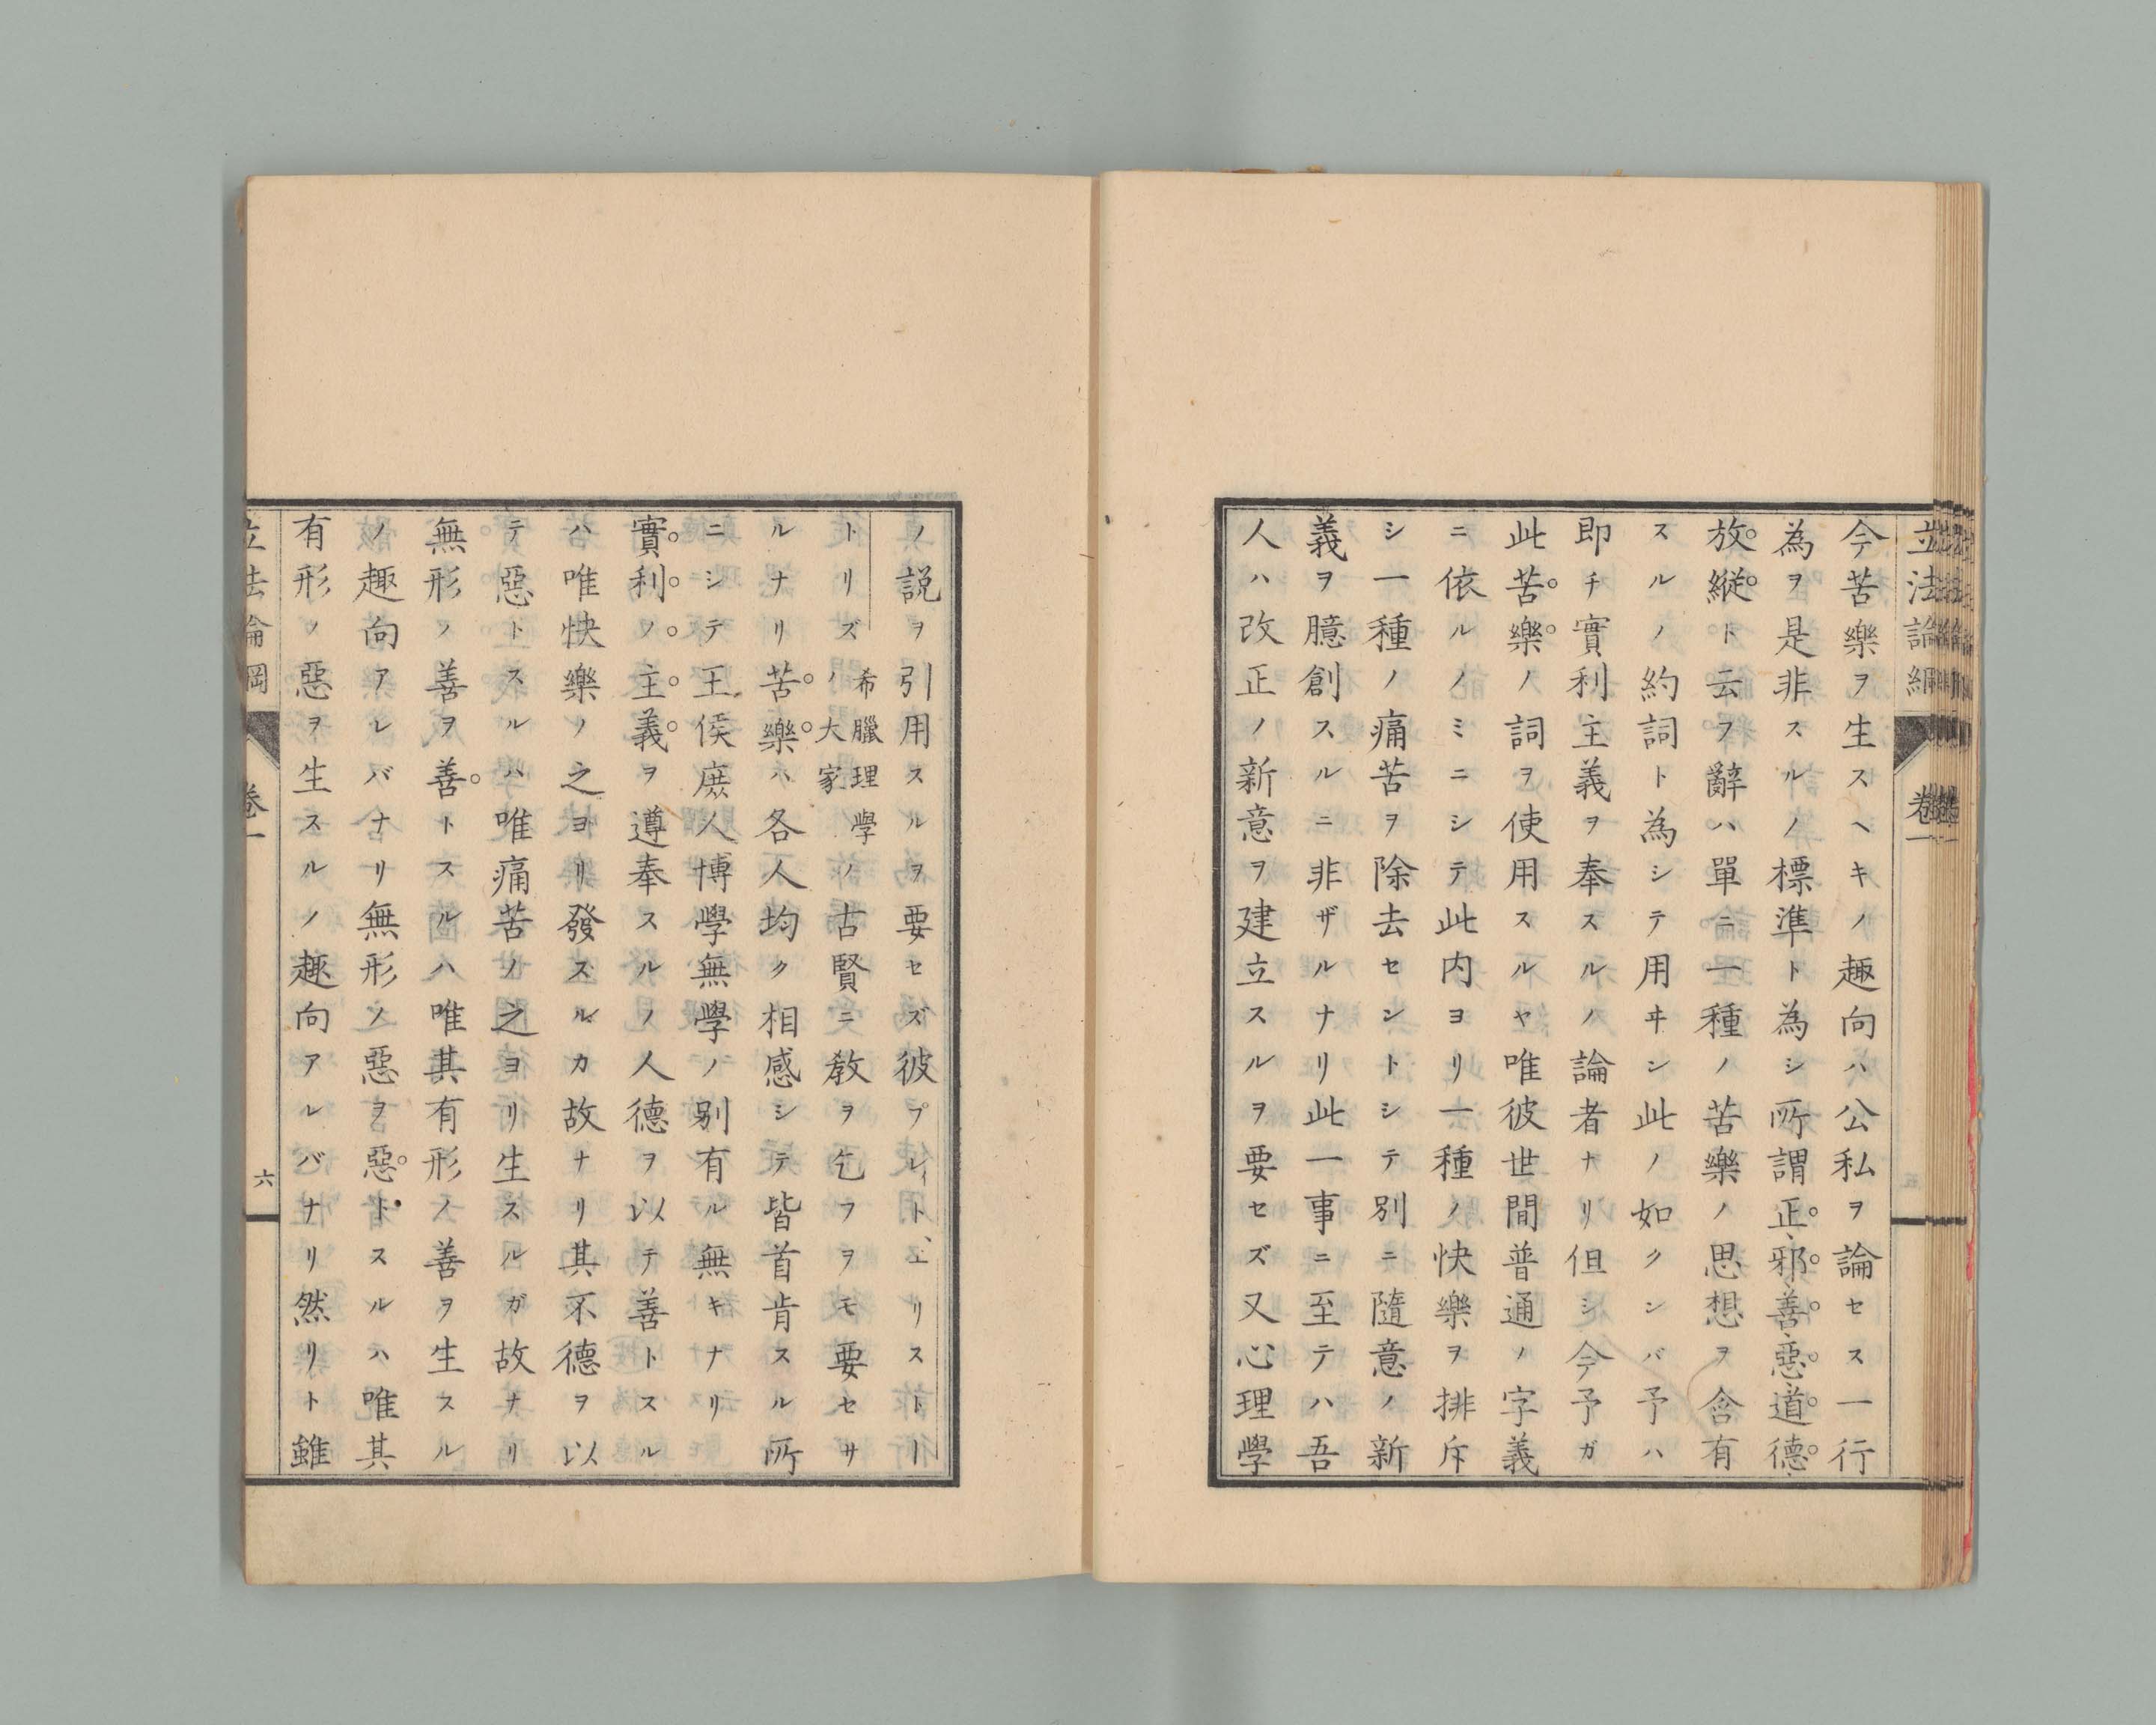 立法論綱 卷一
今苦樂ヲ生スヘキノ趣向ハ公私ヲ論セス一行
為ヲ是非スルノ標準ト為シ所謂正、邪、善、惡、道德、
放縦ト云フ辭ハ單ニ一種ノ苦樂ノ思想ヲ含有
スルノ約詞ト為シテ用ヰン此ノ如クンバ予ハ
即チ實利主義ヲ奉スルノ論者ナリ但シ今予ガ
此苦樂ノ詞ヲ使用スルヤ唯彼世間普通ノ字義
ニ依ルノミニシテ此内ヨリ一種ノ快樂ヲ排斥
シ一種ノ痛苦ヲ除去セントシテ別ニ隨意ノ新
義ヲ臆創スルニ非ザルナリ此一事ニ至テハ吾
人ハ改正ノ新意ヲ建立スルヲ要セズ又心理學
ノ説ヲ引用スルヲ要セズ彼プレイト、ヱリストー
トリズ希臘理學ノ大家ノ古賢ニ教ヲ乞フヲモ要セサ
ルナリ苦樂ハ各人均ク相感シテ皆首肯スル所
ニシテ王侯庶人博學無學ノ別有ル無キナリ
實利ノ主義ヲ遵奉スルノ人德ヲ以テ善トスル
ハ唯快樂ノ之ヨリ發スルカ故ナリ其不德ヲ以
テ惡トスルハ唯痛苦ノ之ヨリ生スルガ故ナリ
無形ノ善ヲ善トスルハ唯其有形ノ善ヲ生スル
ノ趣向アレバナリ無形ノ惡ヲ惡トスルハ唯其
有形ノ惡ヲ生スルノ趣向アレバナリ然リト雖
立法論綱 卷一 六